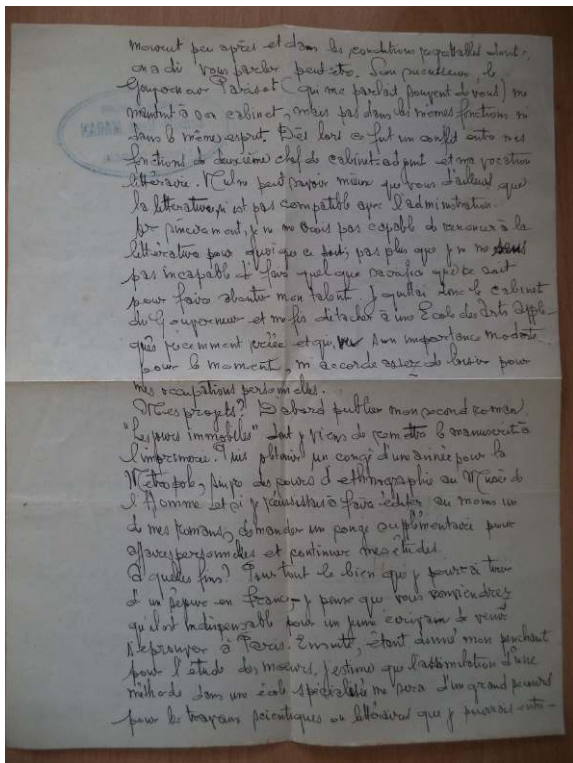 mourut peu après et dans les conditions regrettables dont
on a dû vous parler peut-être. Son successeur, le
Gouverneur Parisot (qui me parlait souvent de vous) me
maintint à son cabinet, mais pas dans les mêmes fonctions ni
dans le même esprit. Dès lors ce fut un conflit entre mes
fonctions de deuxième chef de cabinet adjoint et ma vocation
littéraire. Nul ne peut savoir mieux que vous d'ailleurs que
la littérature n'est pas compatible avec l'administration.
Or sincèrement, je ne me crois pas capable de renoncer à la
littérature pour quoi que ce soit; pas plus que je ne me sens
pas incapable de faire quelque sacrifice que ce soit
pour faire aboutir mon talent. Je quittai donc le cabinet
du Gouverneur et me fis détacher à une Ecole des Arts appli-
qués récemment créée et qui, vu son importance modeste
pour le moment, m'accorde assez de loisir pour
mes occupations personnelles.
Mes projets? D'abord publier mon second roman
"Les jours immobiles" dont je viens de remettre le manuscrit à
l'imprimerie. Puis obtenir un congé d'une année pour la
Métropole, suivre des cours d'ethnographie au Musée de
l'Homme et si je réussissais à faire éditer au moins un
de mes romans, demander un congé supplémentaire pour
affaires personnelles et continuer mes études.
A quelles fins? Pour tout le bien que je pourrai tirer
d'un séjour en France, je pense que vous conviendrez
qu'il est indispensable pour un jeune écrivain de venir
s'éprouver à Paris. Ensuite, étant donné mon penchant
pour l'étude des moeurs, j'estime que l'assimilation d'une
méthode dans une école spécialisée me sera d'un grand secours
pour les travaux scientifiques ou littéraires que je pourrais entre-